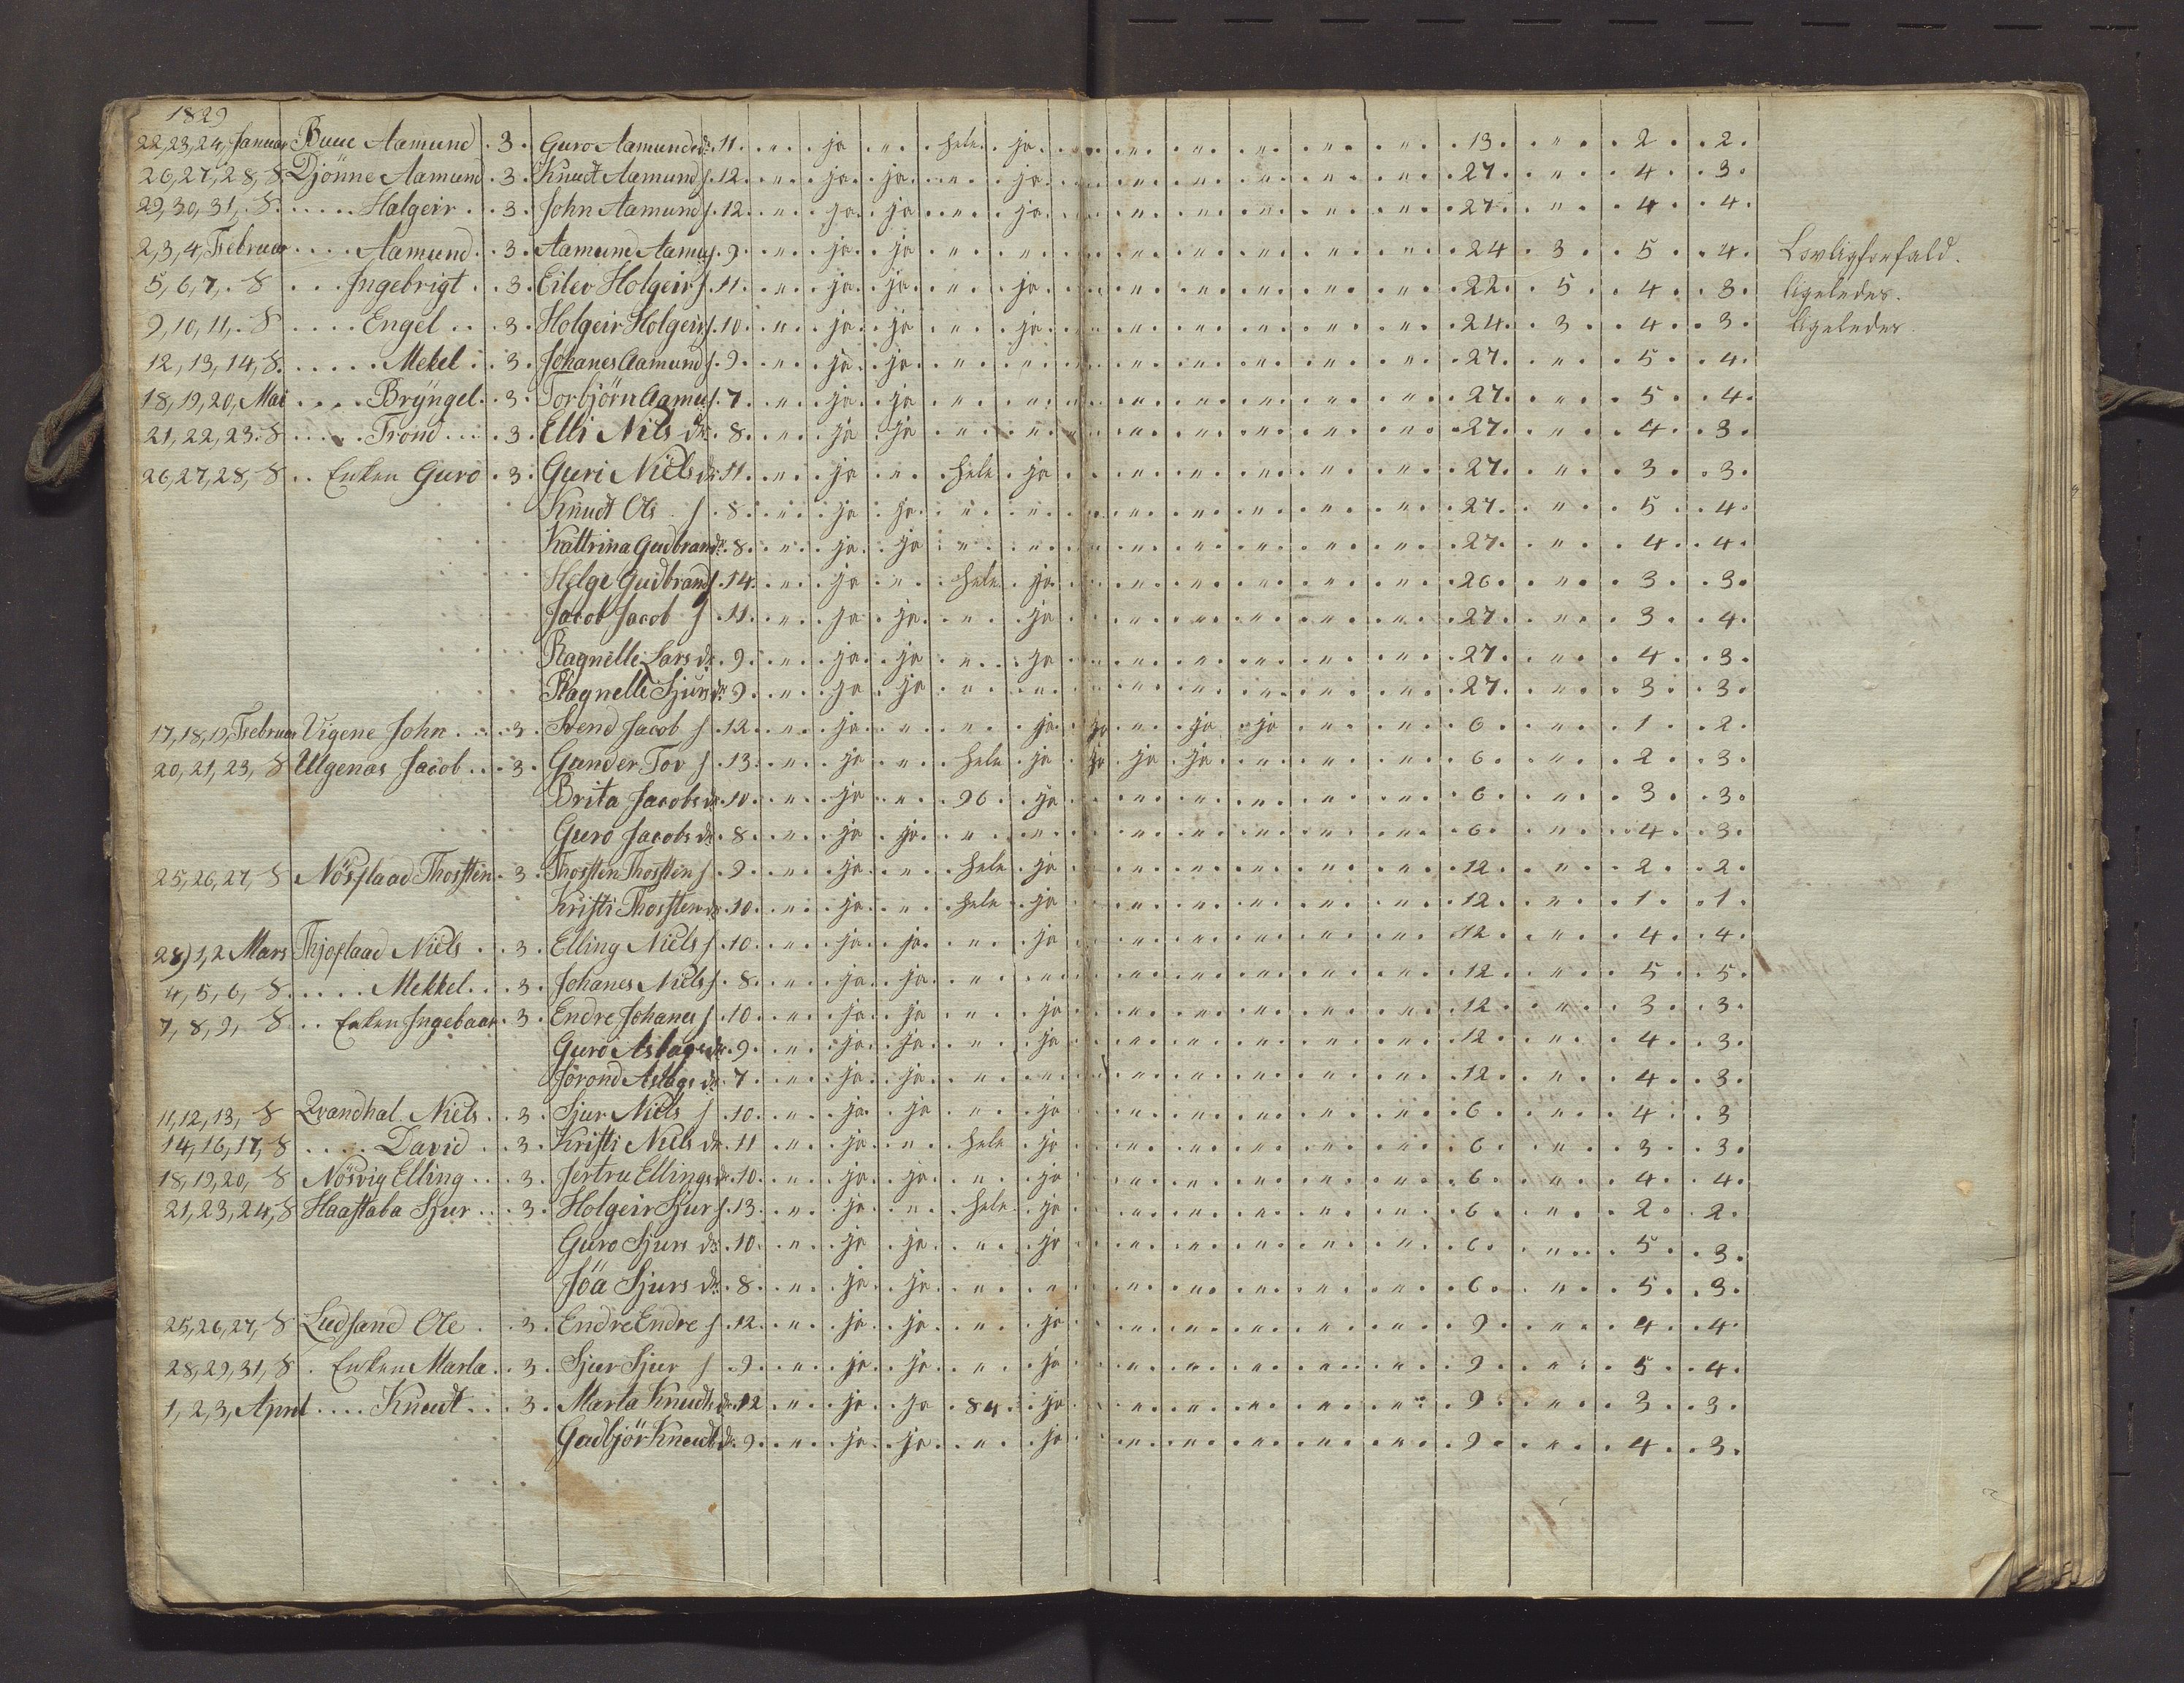 1829
22,23,24, Januar Buue Aamund . 3 . Guro Aamundsdr. 11 . " . ja . " . hele . ja . " . " . " . " . " . 13 . " . 2 . 2 .
26,27,28, 8 Djönne Aamund . 3 . Knudt Aamund s. 12 . " . ja . ja . " . ja . " . " . " . " . " . 27 . " . 4 . 3 .
29,30,31, 8 .... Halgeir . 3 . John Aamund s. 12 . " . ja . ja . " . ja . " . " . " . " . " . 27 . " . 4 . 4 .
2,3,4, Februar .... Aamund . 3 . Aamund Aamu s. 9 . " . ja . ja . " . " . " . " . " . " . " . 24 . 3 . 5 . 4 . Lovligforfald .
5,6,7, 8 ... Ingebrigt . 3 . Eilev Holgeir s. 11 . " . ja . ja . " . ja . " . " . " . " . " . 22 . 5 . 4 . 3 . ligeledes .
9,10,11, 8 .... Engel . 3 . Holgeir Holgeir s. 10 . " . ja . ja . " . ja . " . " . " . " . " . 24 . 3 . 4 . 3 . ligeledes
12,13,14, 8 ..... Mekel . 3 . Johanes Aamund s. 9 . " . ja . ja . " . " . " . " . " . " . " . 27 . " . 5 . 4 .
18,19,20, Mai .... Brÿngel . 3 . Torbjörn Aamu s. 7 . " . ja . ja . " . " . " . " . " . " . " . 27 . " . 5 . 4 .
21,22,23. 8 ..... Trond .... 3 . Elli Nils dr. 8 . " . ja . ja . " . " . " . " . " . " . " . 27 . " . 4 . 3 .
26,27,28, 8 .. Enken Guro . 3 . Guri Niels dr 11 . " . ja . " . hele . ja . " . " . " . " . " . 27 . " . 3 . 3 .
Knudt Ols s . 8 . " . ja . ja . " . " . " . " . " . " . " . 27 . " . 5 . 4 .
Kattrina Gudbrandr. 8 . " . ja . ja . " . " . " . " . " . " . " . 27 . " . 4 . 4 .
Helge Gudbrand s. 14 . " . ja . " . hele . ja . " . " . " . " . " . 26 . " . 3 . 3 .
Jacob Jacob s . 11 . " . ja . ja . " . ja . " . " . " . " . " . 27 . " . 3 . 4 .
Ragnelle Lars dr. 9 . " . ja . ja . " . ja . " . " . " . " . " . 27 . " . 4 . 3 .
Ragnelle Sjurs dr 9 . " . ja . ja . " . " . " . " . " . " . " . 27 . " . 3 . 3 .
17,18,19, Februar Vigene John .... 3 . Svend Jacob s . 12 . " . ja . " . " . ja . ja . " . ja . ja . " . " . 6 . " . 1 . 2 .
20,21,23, 8 Ulgenas Jacob ... 3 . Gunder Tov s . 13 . " . ja . " . hele . ja . ja . ja . ja . " . " . " . 6 . " . 2 . 3 .
Brita Jacobs dr. 10 . " . ja . " . 96 . ja . " . " . " . " . " . 6 . " . 3 . 3 .
Guro Jacobs dr. 8 . " . ja . ja . " . " . " . " . " . " . " . 6 . " . 4 . 3 .
25,26,27, 8 Nösflaad Thosften . 3 . Thosften Thosften s . 9 . " . ja . " . hele . ja . " . " . " . " . " . 12 . " . 2 . 2 .
Kristi Thosften dr. 10 . " . ja . " . hele . ja . " . " . " . " . " . 12 . " . 1 . 1 .
28) 1,2 Mars Thjoflaad Niels .. 3 . Elling Niels s . 10 . " . ja . ja . " . ja . " . " . " . " . " . 12 . " . 4 . 4 .
4,5,6, 8 ..... Mekkel ... 3 . Johanes Niels s . 8 . " . ja . ja . " . " . " . " . " . " . " . 12 . " . 5 . 5 .
7,8,9, 8 .. Enken Ingebaar . 3 . Endre Johanes s . 10 . " . ja . ja . " . ja . " . " . " . " . " . 12 . " . 3 . 3 .
Guro Aslags dr. 9 . " . ja . ja . " . ja . " . " . " . " . " . 12 . " . 4 . 3 .
Jorond Aslags dr. 7 . " . ja . ja . " . " . " . " . " . " . " . 12 . " . 4 . 3 .
11,12,13, 8 Qvandhal Niels .. 3 . Sjur Niels s . 10 . " . ja . ja . " . ja . " . " . " . " . " . 6 . " . 4 . 3
14,16,17, 8 .... David . 3 . Kristi Niels dr. 11 . " . ja . " . hele . ja . " . " . " . " . " . 6 . " . 3 . 3 .
18,19,20, 8 Nösvig Elling ... 3 . Jertru Ellings dr. 10 . " . ja . ja . " . ja . " . " . " . " . " . 6 . " . 4 . 4 .
21,23,24, 8 Haastaba Sjur ... 3 . Holgeir Sjur s . 13 . " . ja . " . hele . ja . " . " . " . " . " . 6 . " . 2 . 2 .
Guro Sjurs dr. 10 . " . ja . ja . " . ja . " . " . " . " . " . 6 . " . 5 . 3 .
Jöa Sjurs dr. 8 . " . ja . ja . " . " . " . " . " . " . " . 6 . " . 5 . 3 .
25,26,27, 8 Ludsand Ole . 3 . Endre Endre s . 12 . " . ja . ja . " . ja . " . " . " . " . " . 9 . " . 4 . 4 .
28,29,31, 8 . Enken Marta .. 3 . Sjur Sjur s . 9 . " . ja . ja . " . ja . " . " . " . " . " . 9 . " . 5 . 4 .
1,2,3, April .... Knudt ... 3 . Marta Knudts dr. 12 . " . ja . ja . 84 . ja . " . " . " . " . " . 9 . " . 3 . 3 .
Gudbjör Knudts dr. 9 . " . ja . ja . " . ja . " . " . " . " . " . 9 . " . 4 . 3 .